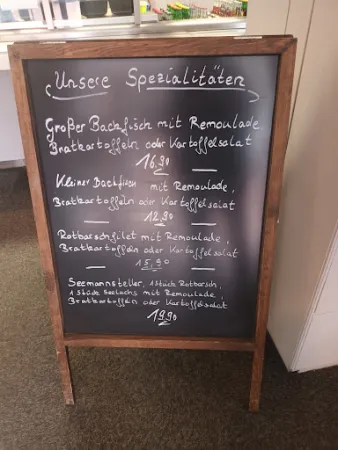 Unsere Spezialitäten
Großer Backfisch mit Remoulade
Bratkartoffeln oder Kartoffelsalat
16,90
Kleiner Backfisch mit Remoulade,
Bratkartoffeln oder Kartoffelsalat
12,90
Rotbarschfilet mit Remoulade,
Bratkartoffeln oder Kartoffelsalat
15,90
Seemannsteller, 1 Stück Rotbarsch,
1 Stück Seelachs mit Remoulade,
Bratkartoffeln oder Kartoffelsalat
19,90